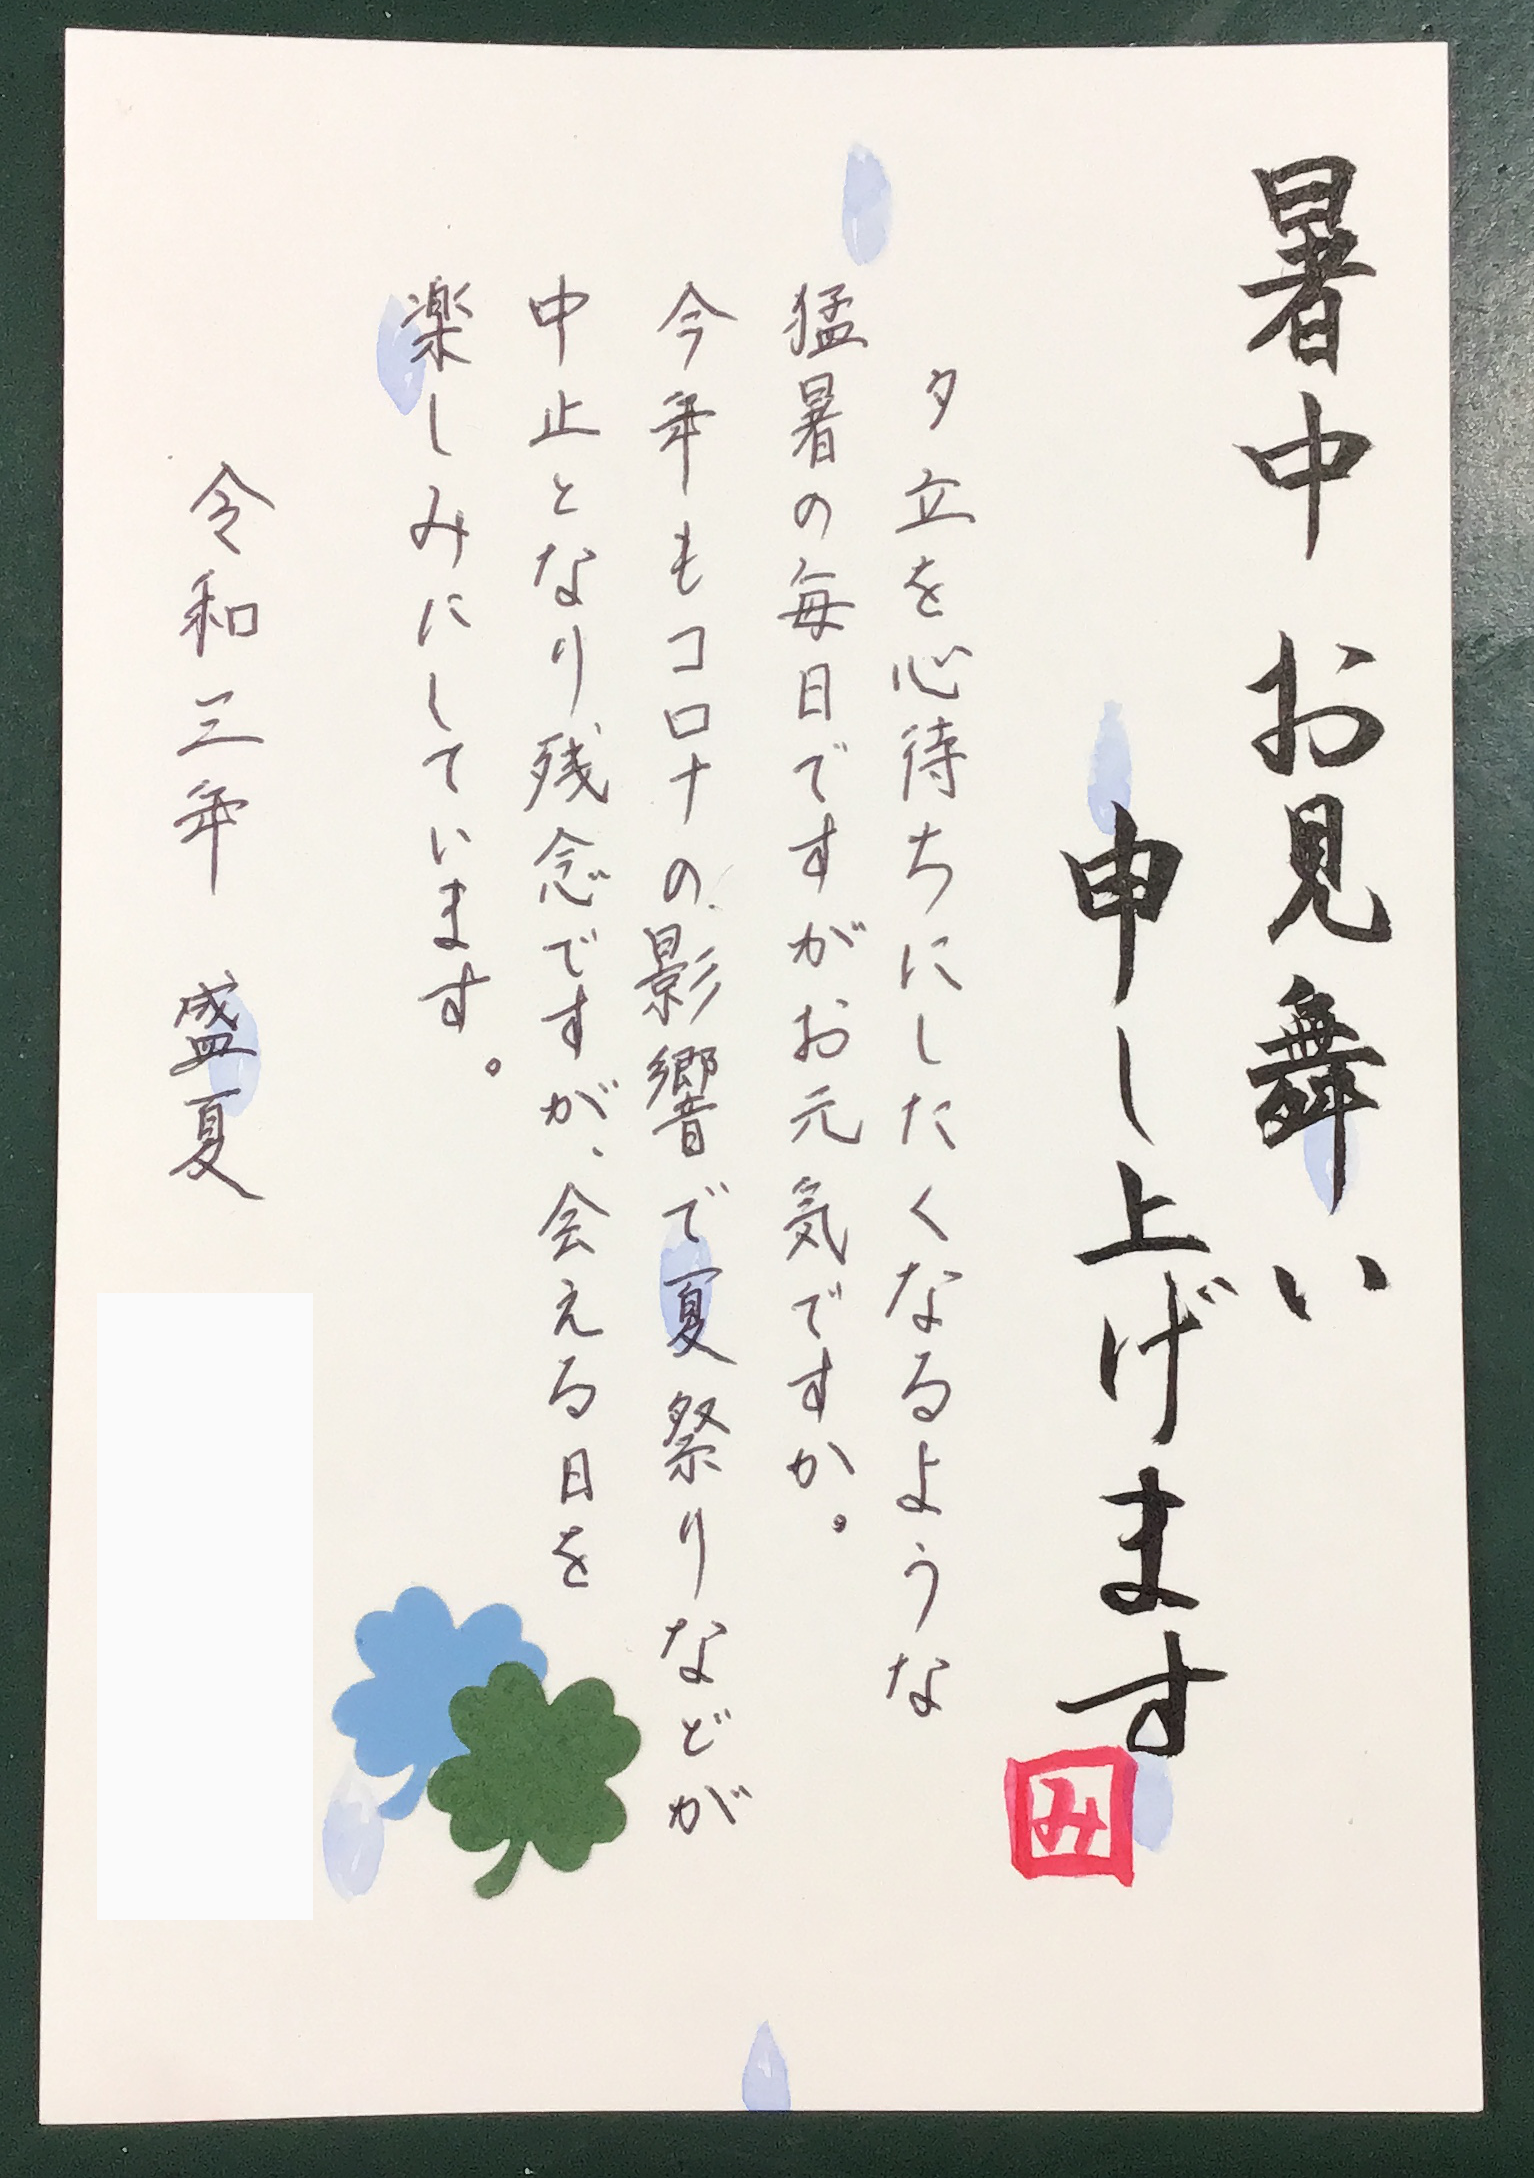 暑中お見舞い
申し上げます
み
夕立を心待ちにしたくなるような
猛暑の毎日ですがお元気ですか。
今年もコロナの影響で夏祭りなどが
中止となり残念ですが、会える日を
楽しみにしています。
令和三年 盛夏